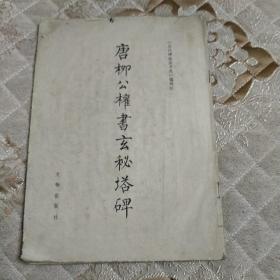 唐柳公權書玄秘塔碑
文物出版社